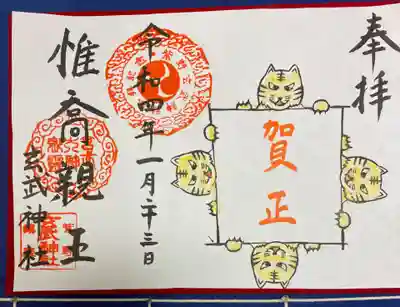 奉拝
賀正
令和四年一月二十三日
惟喬親王
玄武神社